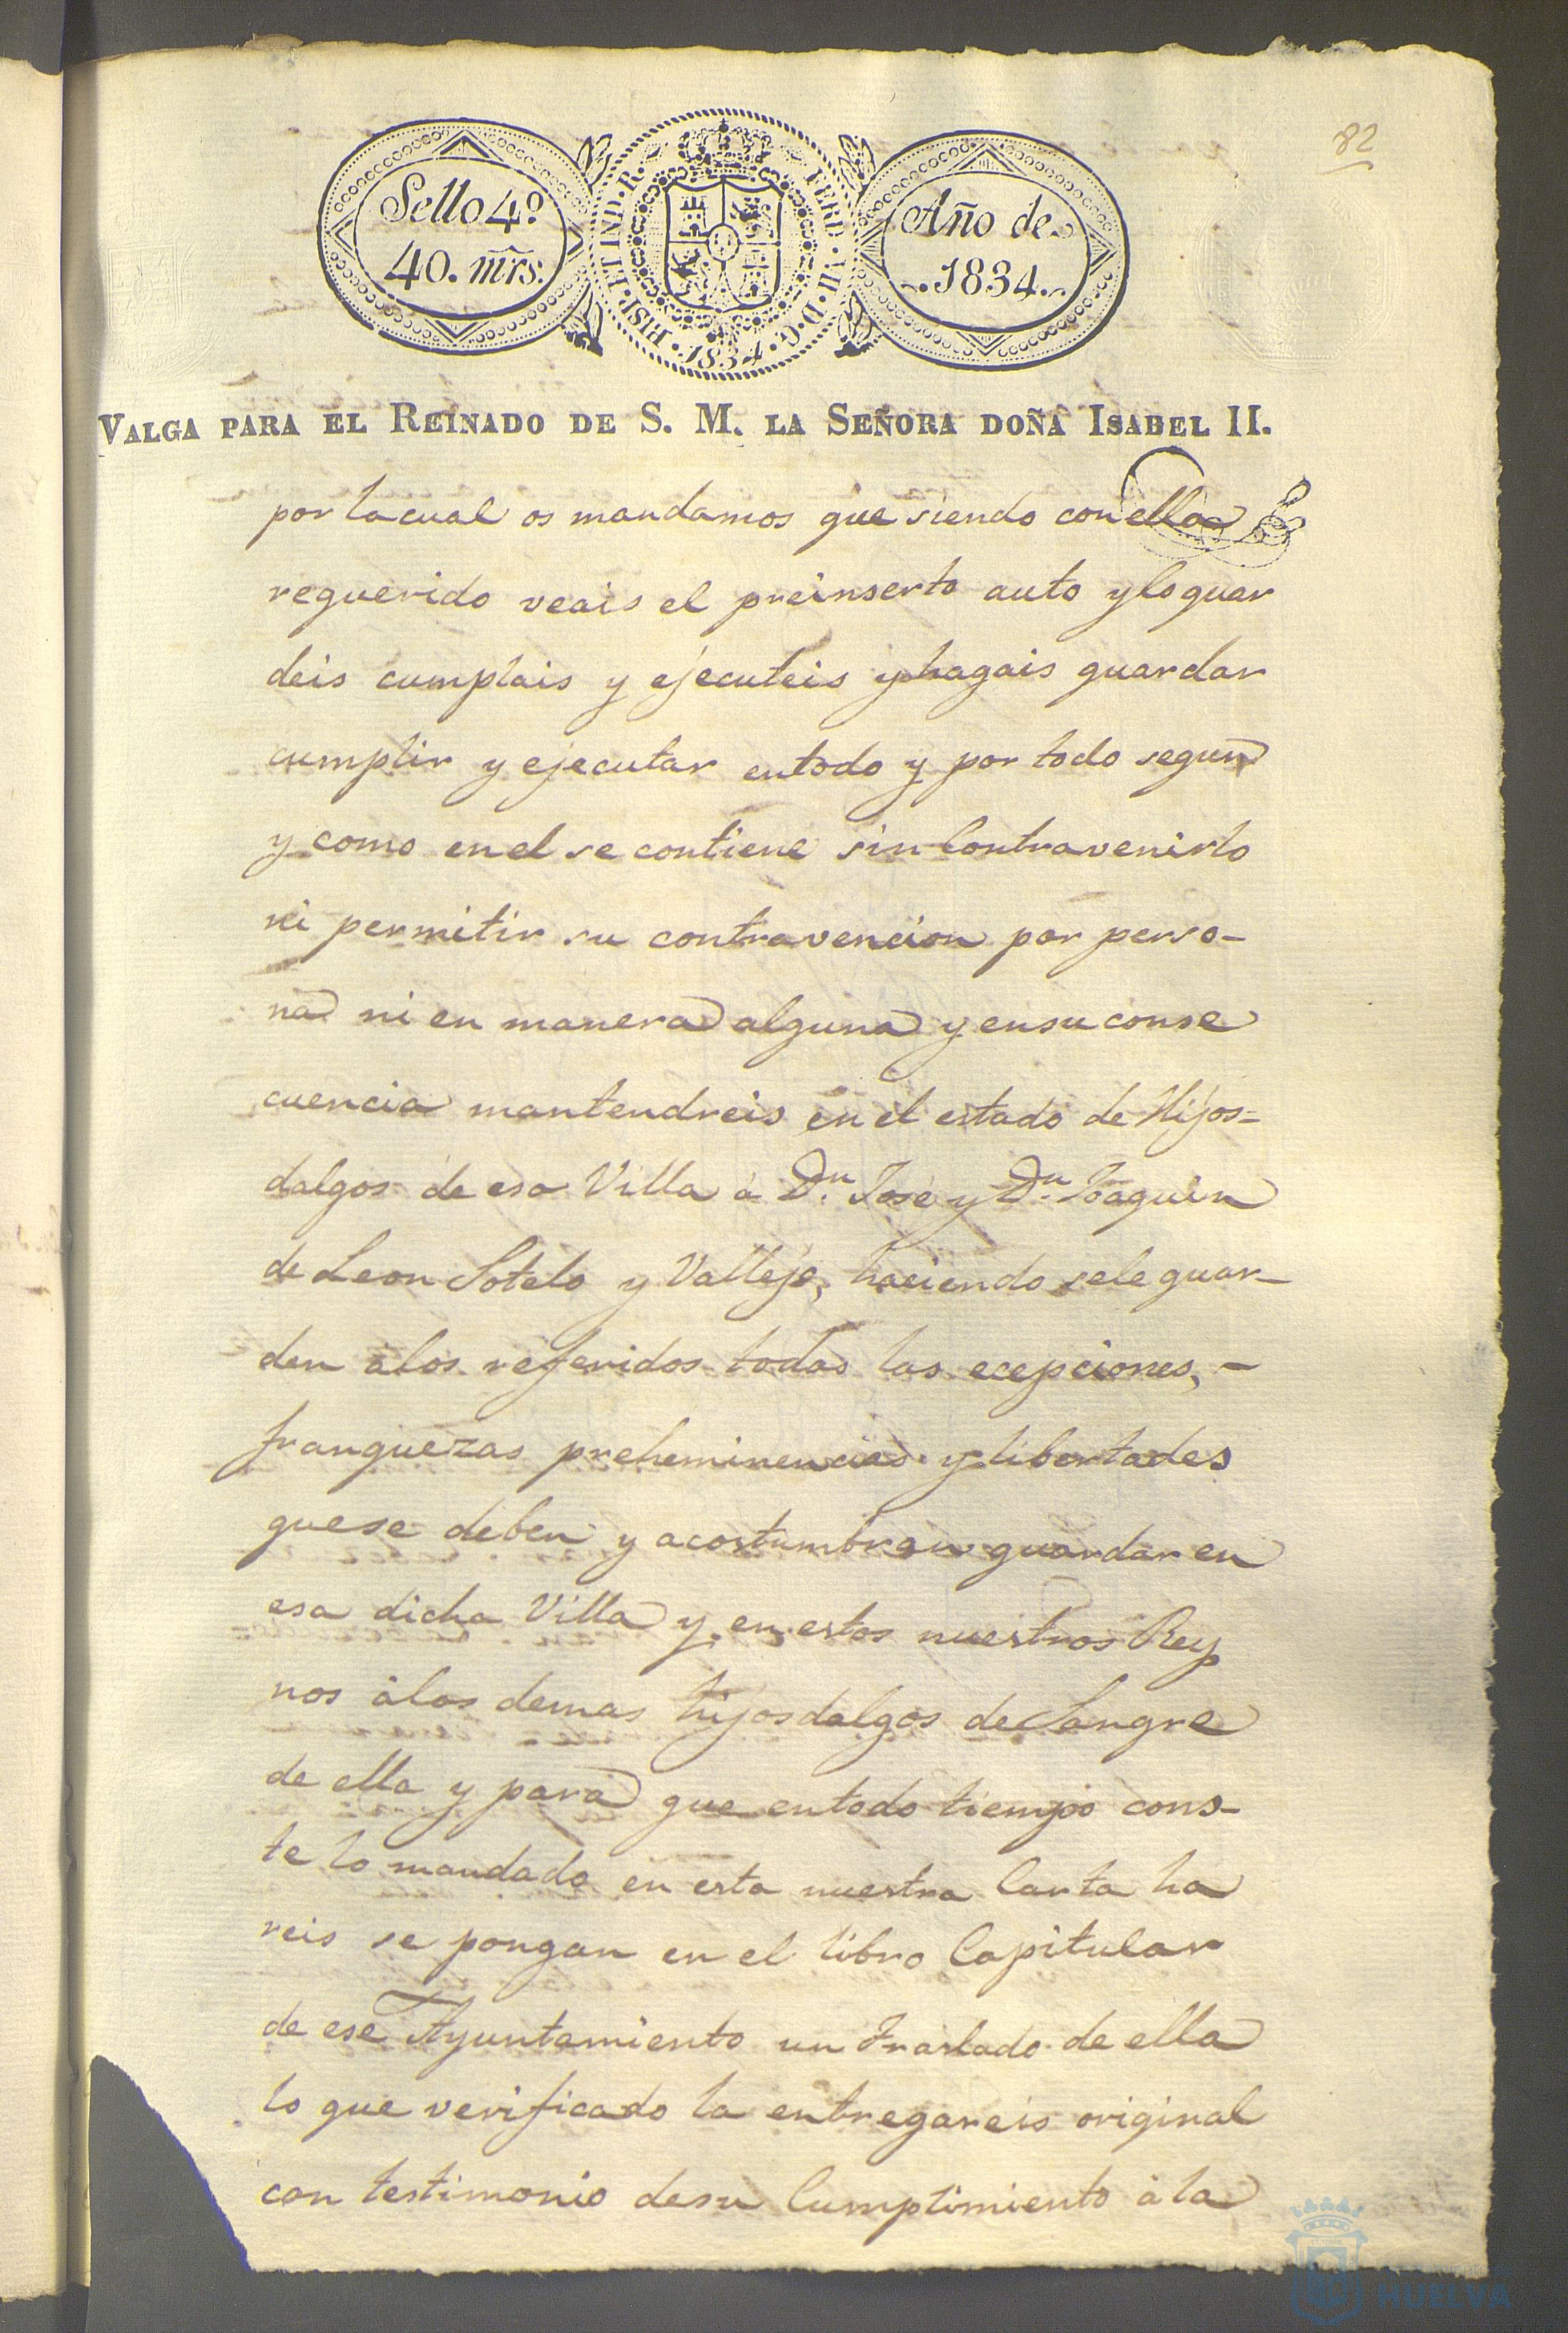 82
Sello 4º
40. mrs.
HISP. ET IND. R.
FERD. VII. D. G.
1834
Año de
1834.
VALGA PARA EL REINADO DE S. M. LA SEÑORA DOÑA ISABEL II.
por la cual os mandamos que siendo con ella
requerido veais el preinserto auto y lo guar
deis cumplais y ejecuteis y hagais guardar
cumplir y ejecutar en todo y por todo segun
y como en el se contiene sin Contravenirlo
ni permitir su contravencion por perso-
na ni en manera alguna y en su conse
cuencia mantendreis en el estado de Hijos=
dalgos de esa Villa á Dn. José y Dn. Joaquin
de Leon Sotelo y Vallejo, haciendo se le guar-
den á los referidos todas las ecepciones, -
franquezas preheminencias y libertades
que se deben y acostumbran guardar en
esa dicha Villa y en estos nuestros Rey
nos á los demas hijosdalgos de Sangre
de ella y para que en todo tiempo cons-
te lo mandado en esta nuestra Carta ha
reis se pongan en el libro Capitular
de ese Ayuntamiento un traslado de ella
lo que verificado la entregareis original
con testimonio de su Cumplimiento á la
HUELVA